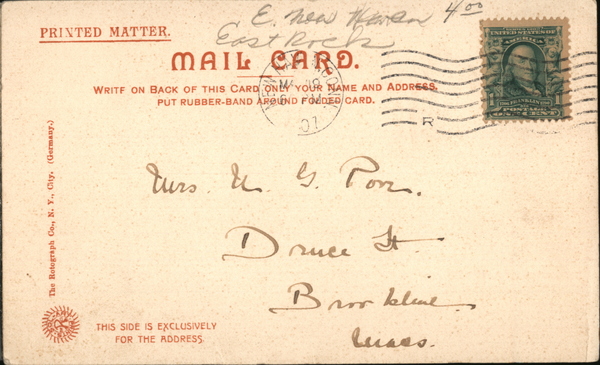 E. New Haven 4.00
East Rock
PRINTED MATTER.
MAIL CARD.
WRITE ON BACK OF THIS CARD ONLY YOUR NAME AND ADDRESS.
PUT RUBBER-BAND AROUND FOLDED CARD.
UNITED STATES OF
AMERICA
FRANKLIN
POSTAGE
1 ONE CENT 1
NEW HAVEN, CONN.
07
R
Mrs.
Druce St.
Brookline
Mass.
The Rotograph Co., N. Y., City. (Germany.)
THIS SIDE IS EXCLUSIVELY
FOR THE ADDRESS.